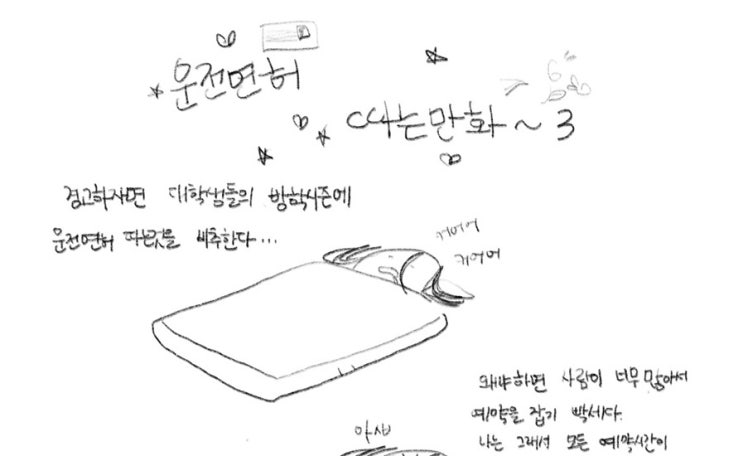 운전면허
따는만화~3
경고하자면 대학생들의 방학시즌에
운전면허 따는것을 비추한다...
커어어
커어어
왜냐하면 사람이 너무 많아서
예약을 잡기 빡세다.
아씨
나는 그래서 모든 예약시간이